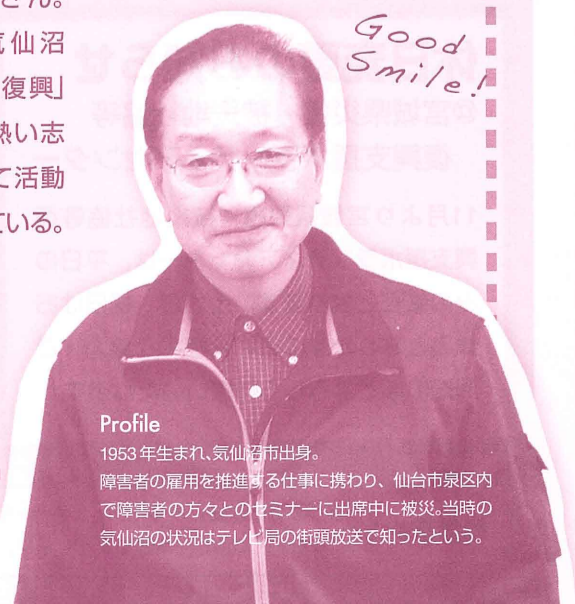 さん。
気仙沼
復興」
熱い志
て活動
ている。
Good
Smile!
Profile
1953年生まれ、気仙沼市出身。
障害者の雇用を推進する仕事に携わり、仙台市泉区内
で障害者の方々とのセミナーに出席中に被災。当時の
気仙沼の状況はテレビ局の街頭放送で知ったという。